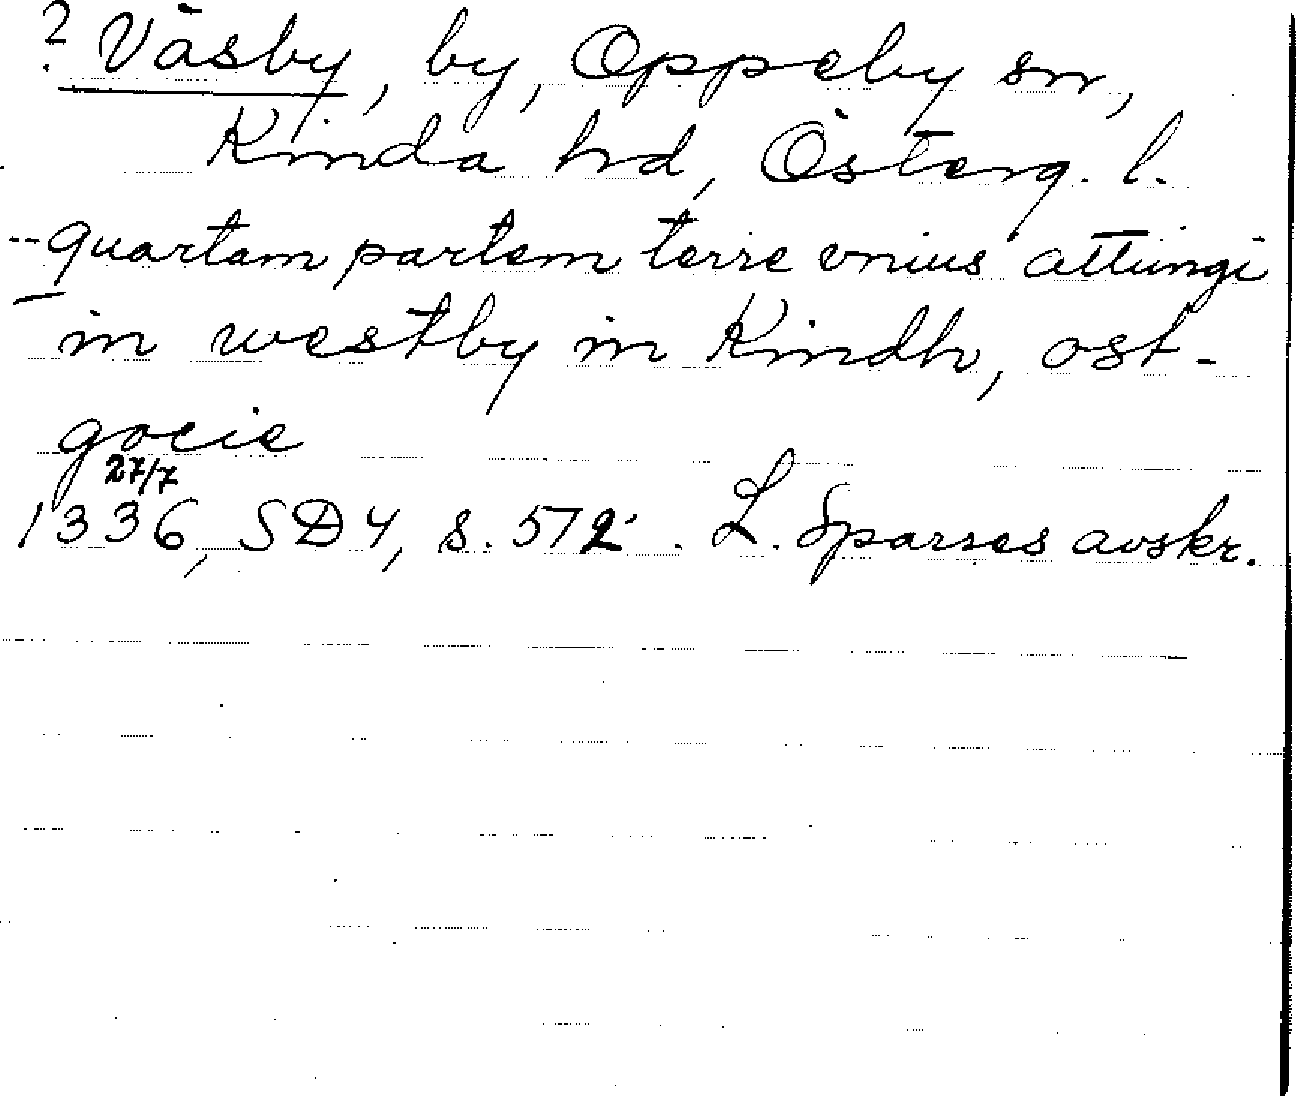 ? Väsby, by, Oppeby sn,
Kinda hd, Österg. l.
-- quartam partem terre vnius attungi
in westby in Kindh, ost-
gocie
27/7
1336, SD4, s. 572. L. Sparres avskr.